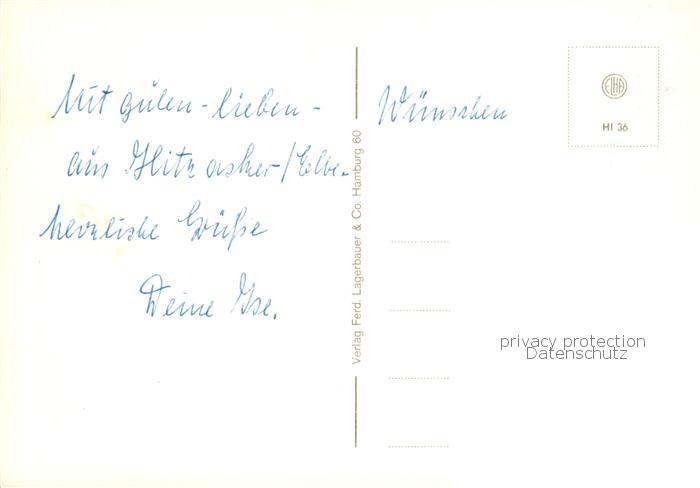 Mit guten - lieben - Wünschen
aus Hitzacker/Elbe -
herzliche Grüße
Deine Ilse.
Verlag Ferd. Lagerbauer & Co. Hamburg 60
ELHA
HI 36
privacy protection
Datenschutz